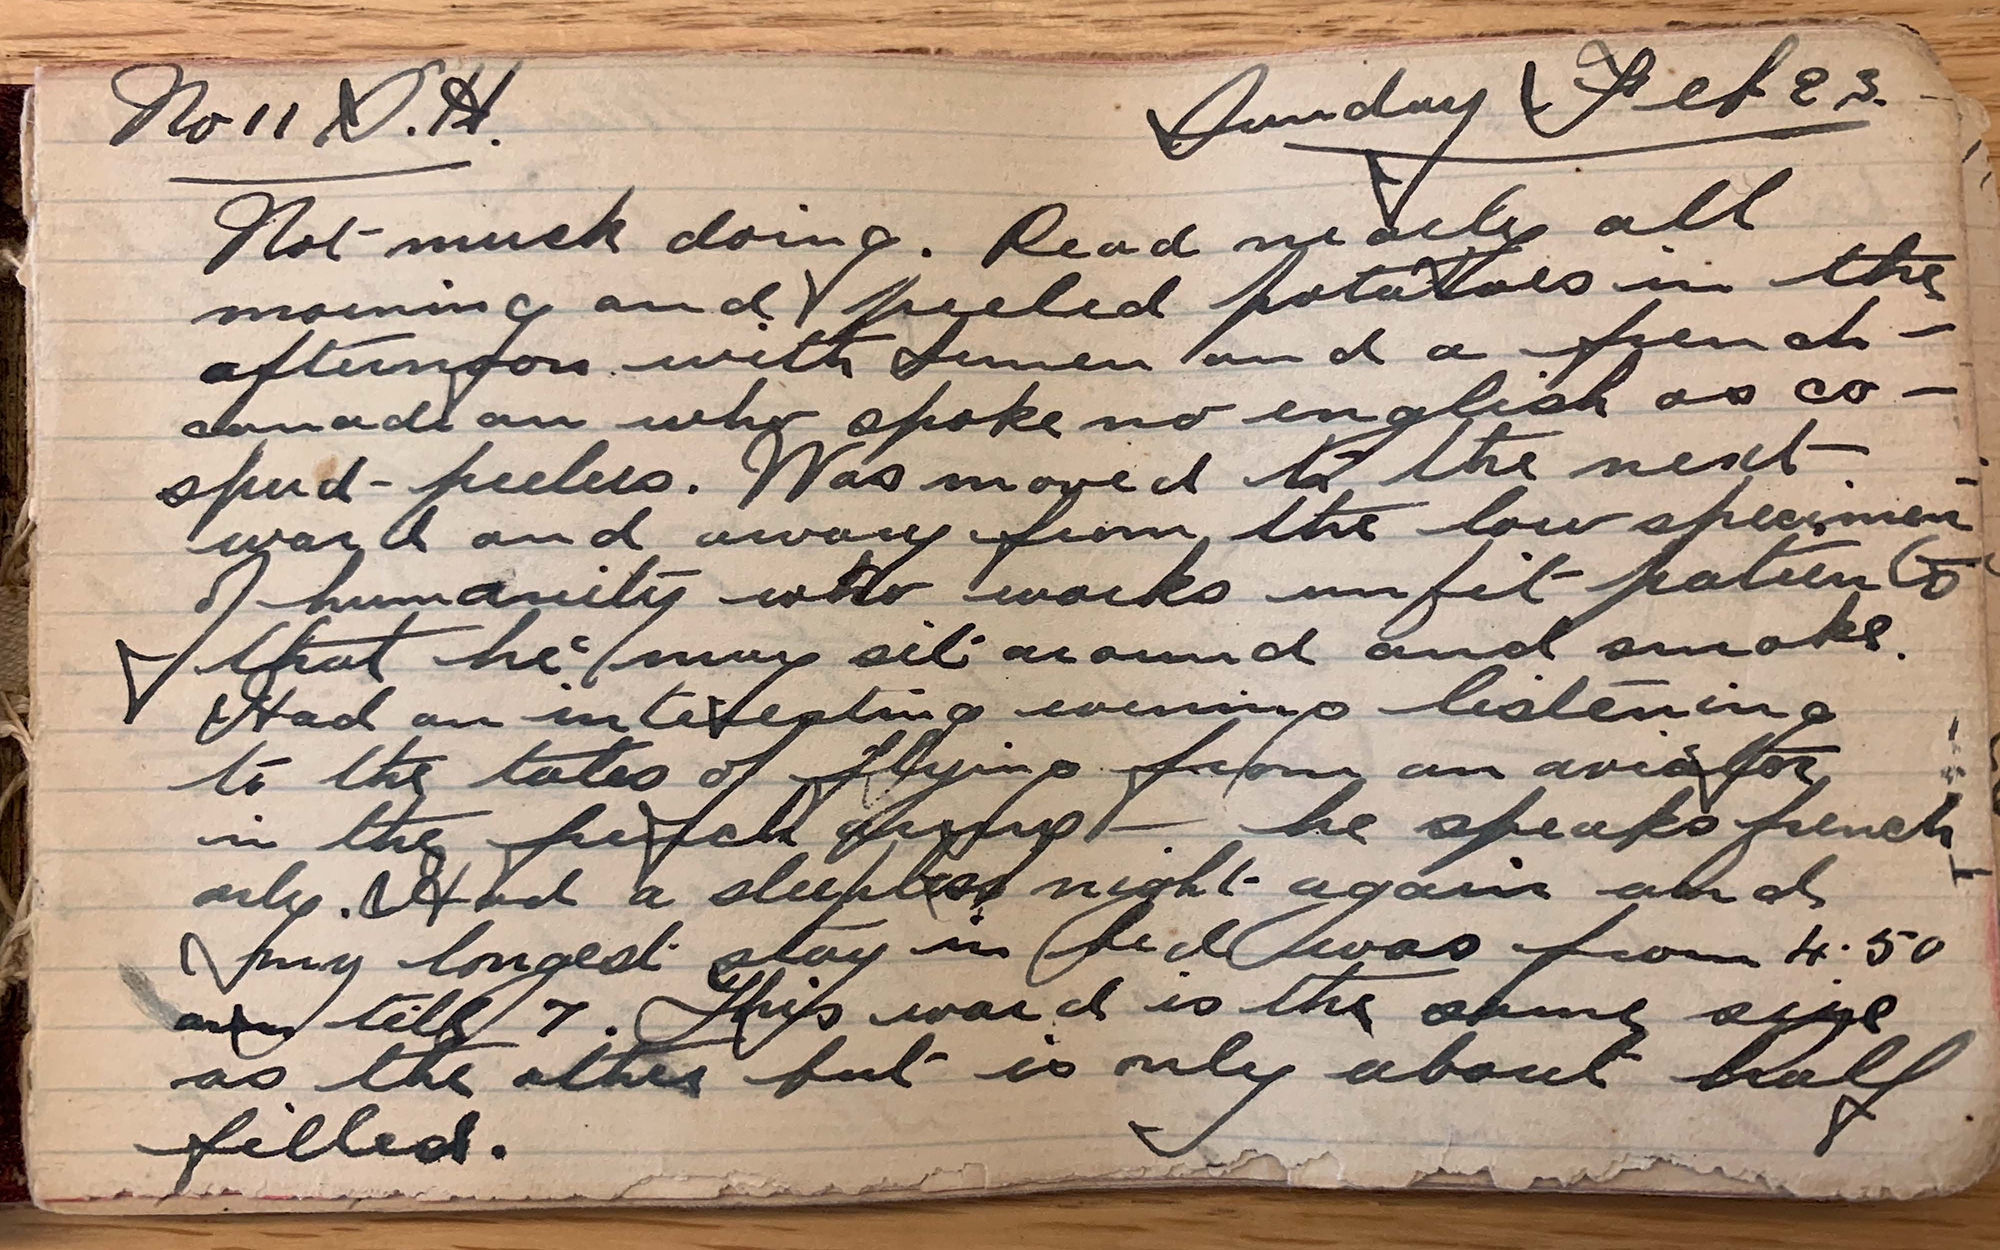 No 11 D.H. Sunday Feb 23.
Not much doing. Read nearly all
morning and peeled potatoes in the
afternoon with and a french-
canadian who spoke no english as co-
spud-peelers. Was moved to the next
ward and away from the low specimen
of humanity who works unfit patients
that he may sit around and smoke.
Had an interesting evening listening
to the tales of flying from an aviator
in the french army — he speaks french
only. Had a sleepless night again and
my longest stay in bed was from 4.50
am till 7. This ward is the same size
as the other but is only about half
filled.